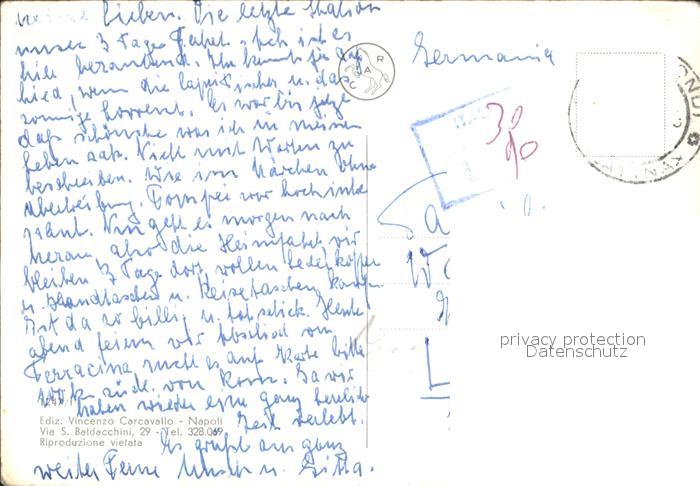 Lieben. Die letzte Station
unser 3 Tage Fahrt. Ich ist es
hier bezaubernd. Ihr kennt ja das
Lied, wenn die
sonnige Sorrent. Es war bis jetzt
das schönste was ich in meinem
Leben sah. Nicht mit Worten zu
beschreiben. Wie im Märchen ohne
Übertreibung. Pompei war hochinte
ssant. Nun geht es morgen nach
also die Heimfahrt, wir
bleiben 3 Tage dort, wollen Lederkoffer
u. Handtaschen u. Reisetaschen kaufen
Ist da so billig u. so schick. Heute
abend feiern wir Abschied von
Terracina, auf Karte bitte
zück. von Rom. Ja wir
haben wieder eine ganz herrliche
Zeit verlebt.
Es grüßt aus ganz
weiter Ferne u. Gitta.
Germania
CAR
30
90
Ediz. Vincenzo Carcavallo - Napoli
Via S. Baldacchini, 29 - Tel. 328.069
Riproduzione vietata
privacy protection
Datenschutz